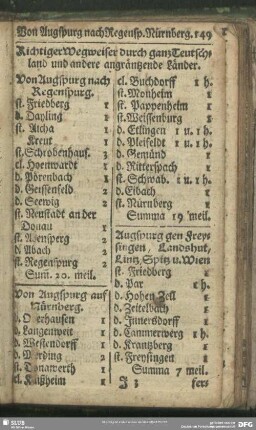 Von Augspurg nach Regensp. Nürnberg. 149
Richtiger Wegweiser durch gantz Teutsch-
land und andere angräntzende Länder.
Von Augspurg nach
Regenspurg.
st. Friedberg 1
d. Dasing 2
st. Aicha 1
Kreut 1
st. Schrobenhaus. 3
cl. Hoenwardt 1
d. Pörenbach 1
d. Geissenfeld 2
d. Seewig 2
st. Neustadt an der
Donau 1
st. Abensperg 2
d. Abach 2
st. Regenspurg 2
Sum. 20. meil.
Von Augspurg auf
Nürnberg.
d. Oerhausen 1
d. Langenweit 1
d. Westendorff 1
d. Nording 2
st. Donawerth 1
cl. Käißheim 1
cl. Buchdorff 1 h.
st. Monheim 1
st. Pappenheim 1
st. Weissenburg 1
d. Etlingen 1 u. 1 h.
d. Pleifeldt 1 u. 1 h.
d. Gemünd 1
d. Ritterspach 1
st. Schwab. 1 u. 1 h.
d. Eibach 1
st. Nürnberg 1
Summa 19 meil.
Augspurg gen Freys
singen, Landshut,
Lintz, Spitz u. Wien
st. Friedberg 1
d. Par 1 h.
d. Hohen Zell 1
d. Zeitelbach 1
d. Inttersdorff 1
d. Cammerwerg 1 h.
d. Krantzberg 1
st. Freysingen 1
Summa 7 meil.
J 3 fers
SLUB
DFG